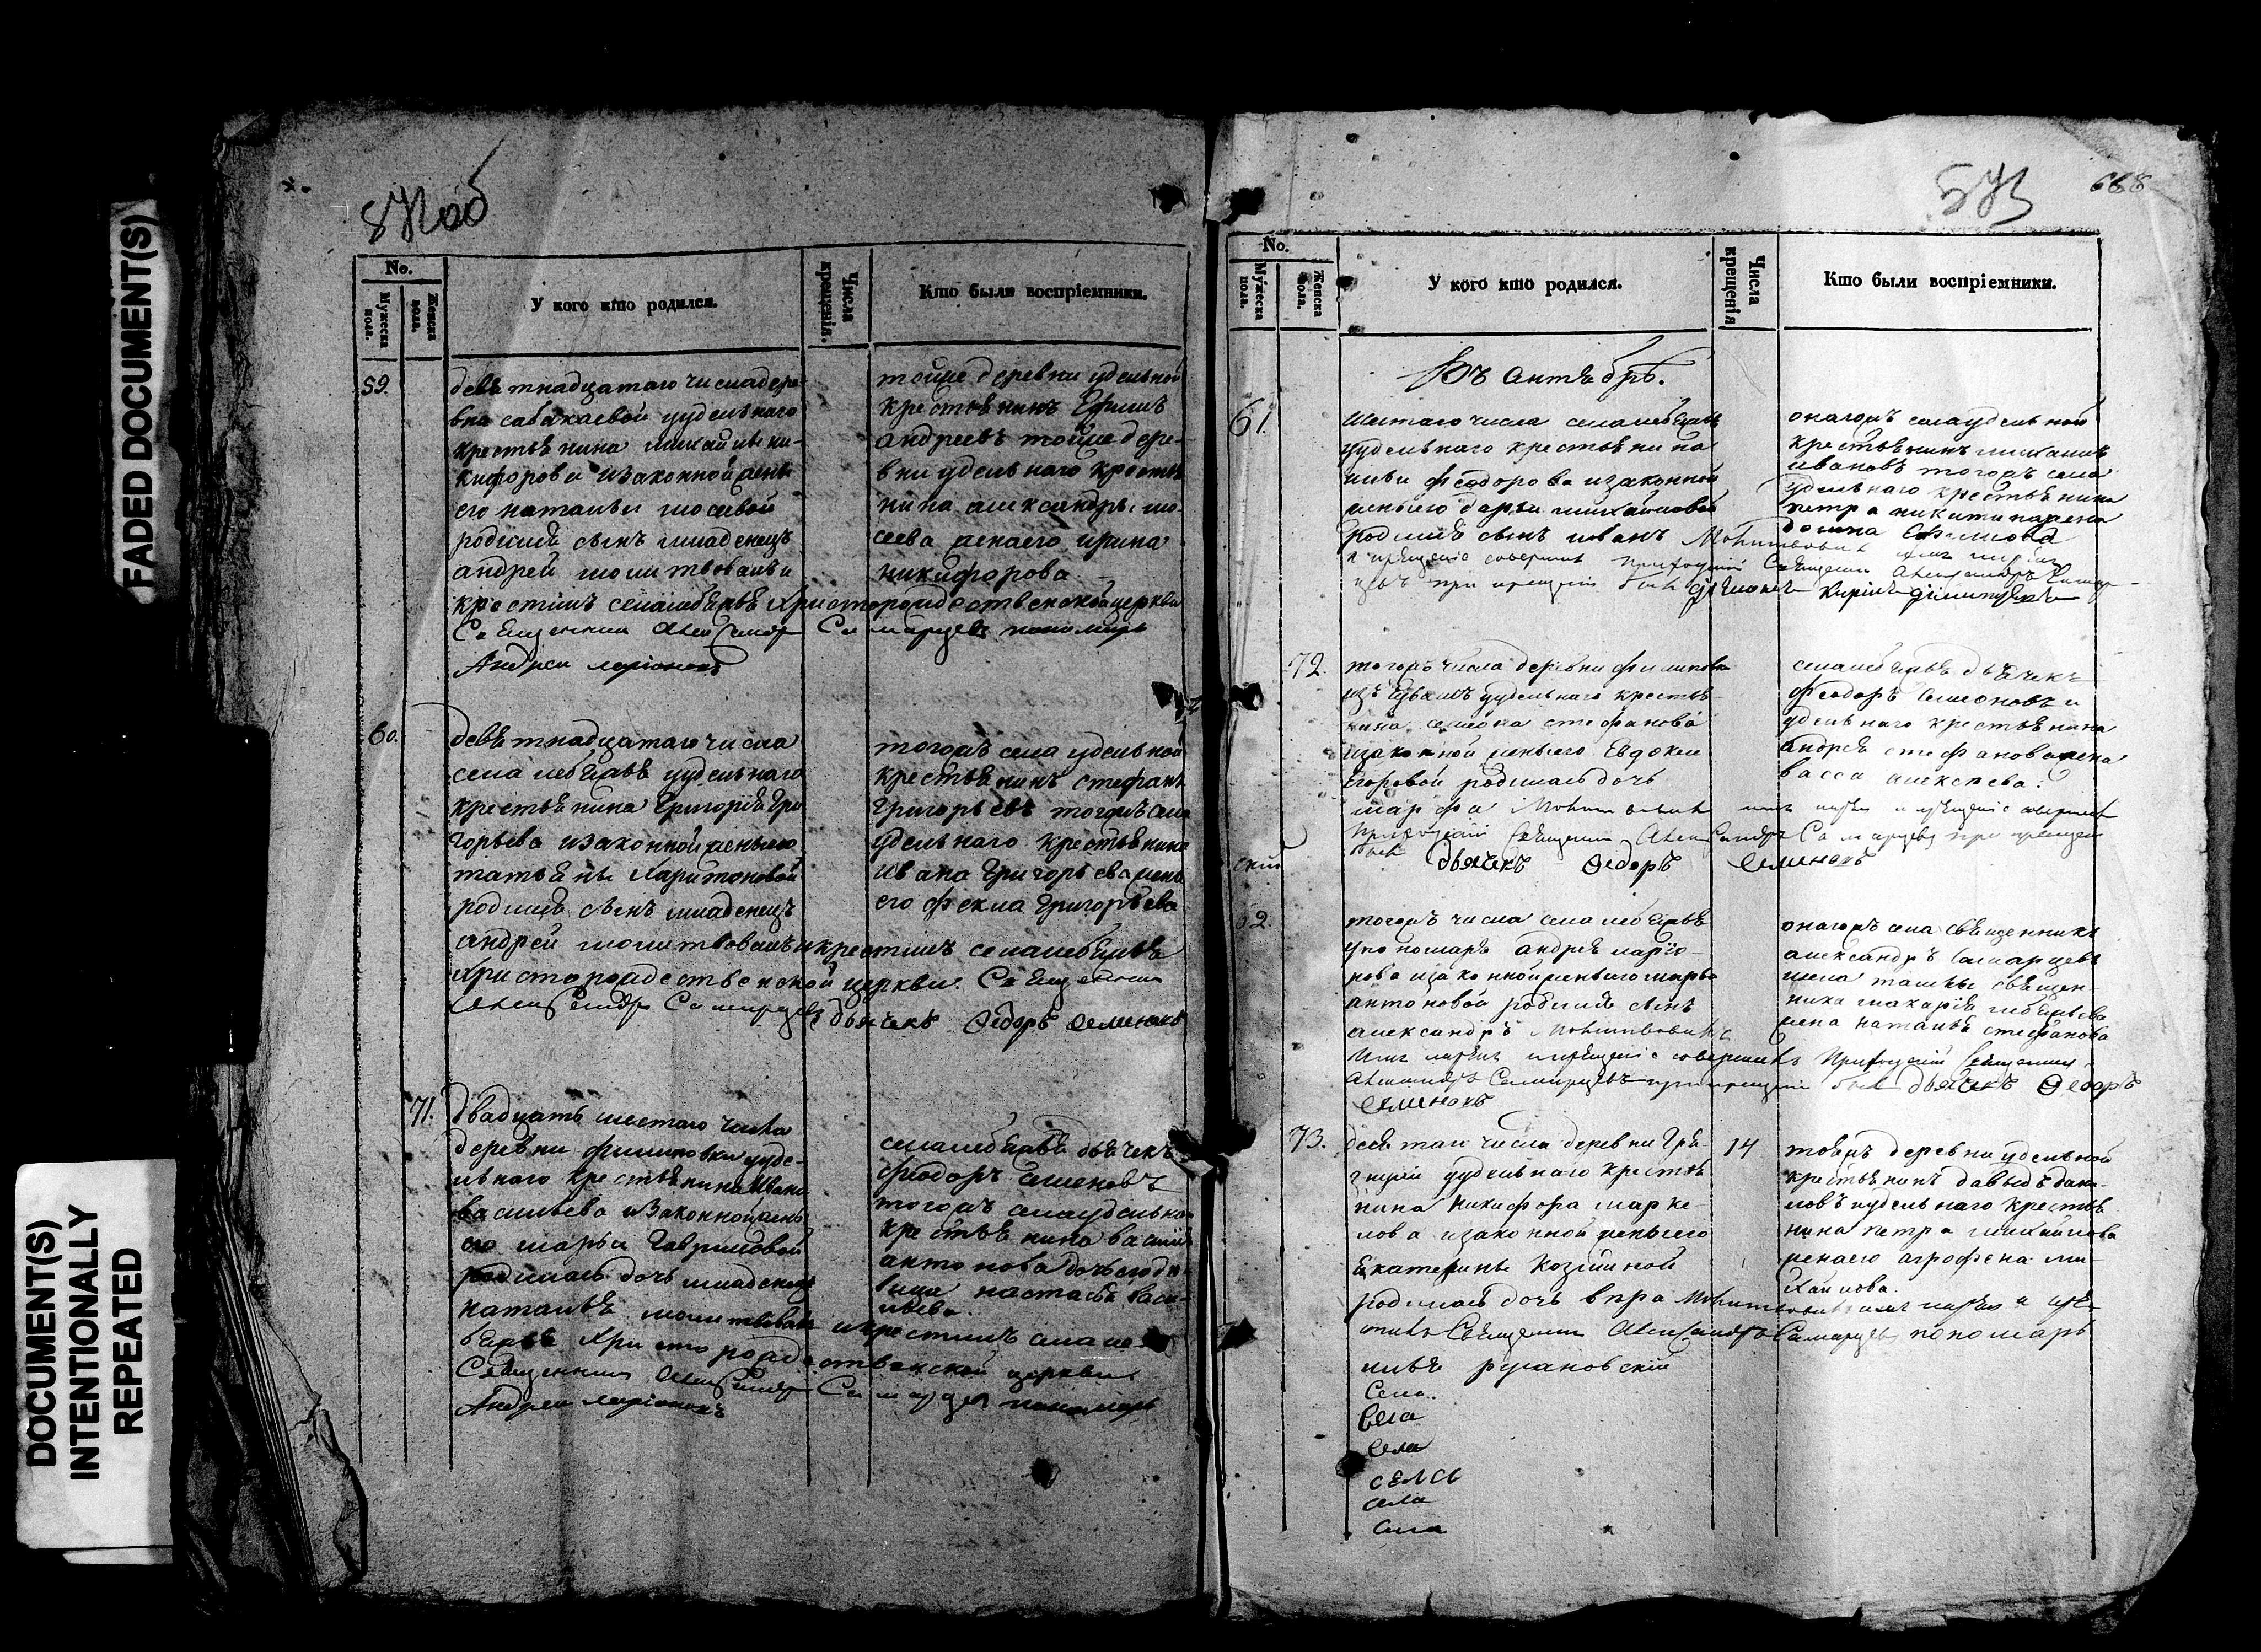 FADED DOCUMENT(S)
DOCUMENT(S)
INTENTIONALLY
REPEATED
No.
Мужеска пола.
Женска пола.
У кого кто родился.
Числа крещенія.
Кто были воспріемники.
59.
деветнадцатаго числа дере-
вни сабакаевой уудельнаго
крестьянина
кифорова изаконной жены
его натальи мосевой
родился сынъ младенецъ
андрей молитвовалъ и
крестилъ села лебяжья Христорождественской церкви
Священник Александр Самарцев пономарь
Андреи ларіоновъ
тойже деревни удельной
крестьянинъ Ефимъ
андреевъ тойже дере-
вни удельнаго крестья
нина александры мо-
сеева женаего ирина
никифорова
60.
деветнадцатаго числа
села лебяжья уудельнаго
крестьянина Григорія Гри
горьева изаконной женыего
татьяны Харитоновой
родился сынъ младенецъ
андрей молитвовалъ икрестилъ села лебяжья
Христорождественской церкви Священник
Александр Самарцев дьячекъ Ѳедоръ Семеновъ
тогожъ села удельной
крестьянинъ стефанъ
Григорьевъ тогожъ села
удельнаго крестьянина
Ивана Григорьева жена
его фекла Григорьева
71.
двадцать шестаго числа
деревни филиповки ууде-
льнаго крестьянина Ивана
васильева изаконной жены
его марьи Гавриловой
родилась дочь младенец
наталья молитвовалъ икрестилъ села ле
бяжья Христорождественской церкви
Священник Александр Самарцев пономарь
Андреи ларіоновъ
села лебяжья дьячекъ
феодоръ Семеновъ
тогожъ села удельнаго
крестьянина васильи
антонова дочь его де
вица настасья васи-
льева.
668
No.
Мужеска пола.
Женска пола.
У кого кто родился.
Числа крещенія
Кто были воспріемники.
Въ Октябрѣ.
61.
Шестаго числа села лебяжья
уудельнаго крестьянина
ильи феодорова изаконной
женыего дарьи михайловой
родился сынъ иванъ Молитвовил имя нарек
и крещеніе совершил Приходский Священник Александръ Самар-
цевъ при крещеніи былъ Кирилъ
онагожъ села удельной
крестьянинъ михаилъ
ивановъ тогожъ села
удельнаго крестьянина
петра никитина жена
домна Ефимова
72.
тогожъ числа деревни филиповки
уудельнаго крестья-
нина семёна стефанова
изаконной женыего Евдокеи
Егоровой родилась дочь
марфа Молитвовил имя нарек и крещеніе совершил
Приходский Священник Александр Самарцев при крещеніи
былъ дьячекъ Ѳедоръ Семеновъ
села лебяжья дьячекъ
феодоръ Семеновъ и
удельнаго крестьянина
андрея стефанова жена
васса алексеева.
62.
тогожъ числа села лебяжья
упономаря андрея ларіо-
нова изаконной женыего марьи
антоновой родился сынъ
александръ Молитвовилъ
имя нарек и крещеніе совершилъ Приходский Священник
Александръ Самарцевъ при крещеніи был дьячекъ Ѳедоръ
Семеновъ
онагожъ села священникъ
александръ Самарцевъ
села ташлы священ-
ника макарія лебедева
жена наталья стефанова
73.
десятаго числа деревни Гря-
уудельнаго крестья
нина Никифора марке-
лова изаконной женыего
Екатерины Козминой
родилась дочь вера Молитвовил имя нарек и кре-
стилъ Священник Александръ Самарцев пономарь
14
тояжъ деревни удельной
крестьянинъ давыдъ дани-
ловъ иудельнаго крестья
нина петра михайлова
женаего агрофена ми-
хайлова.
илья русановский
Села.
Села
Села
села
села